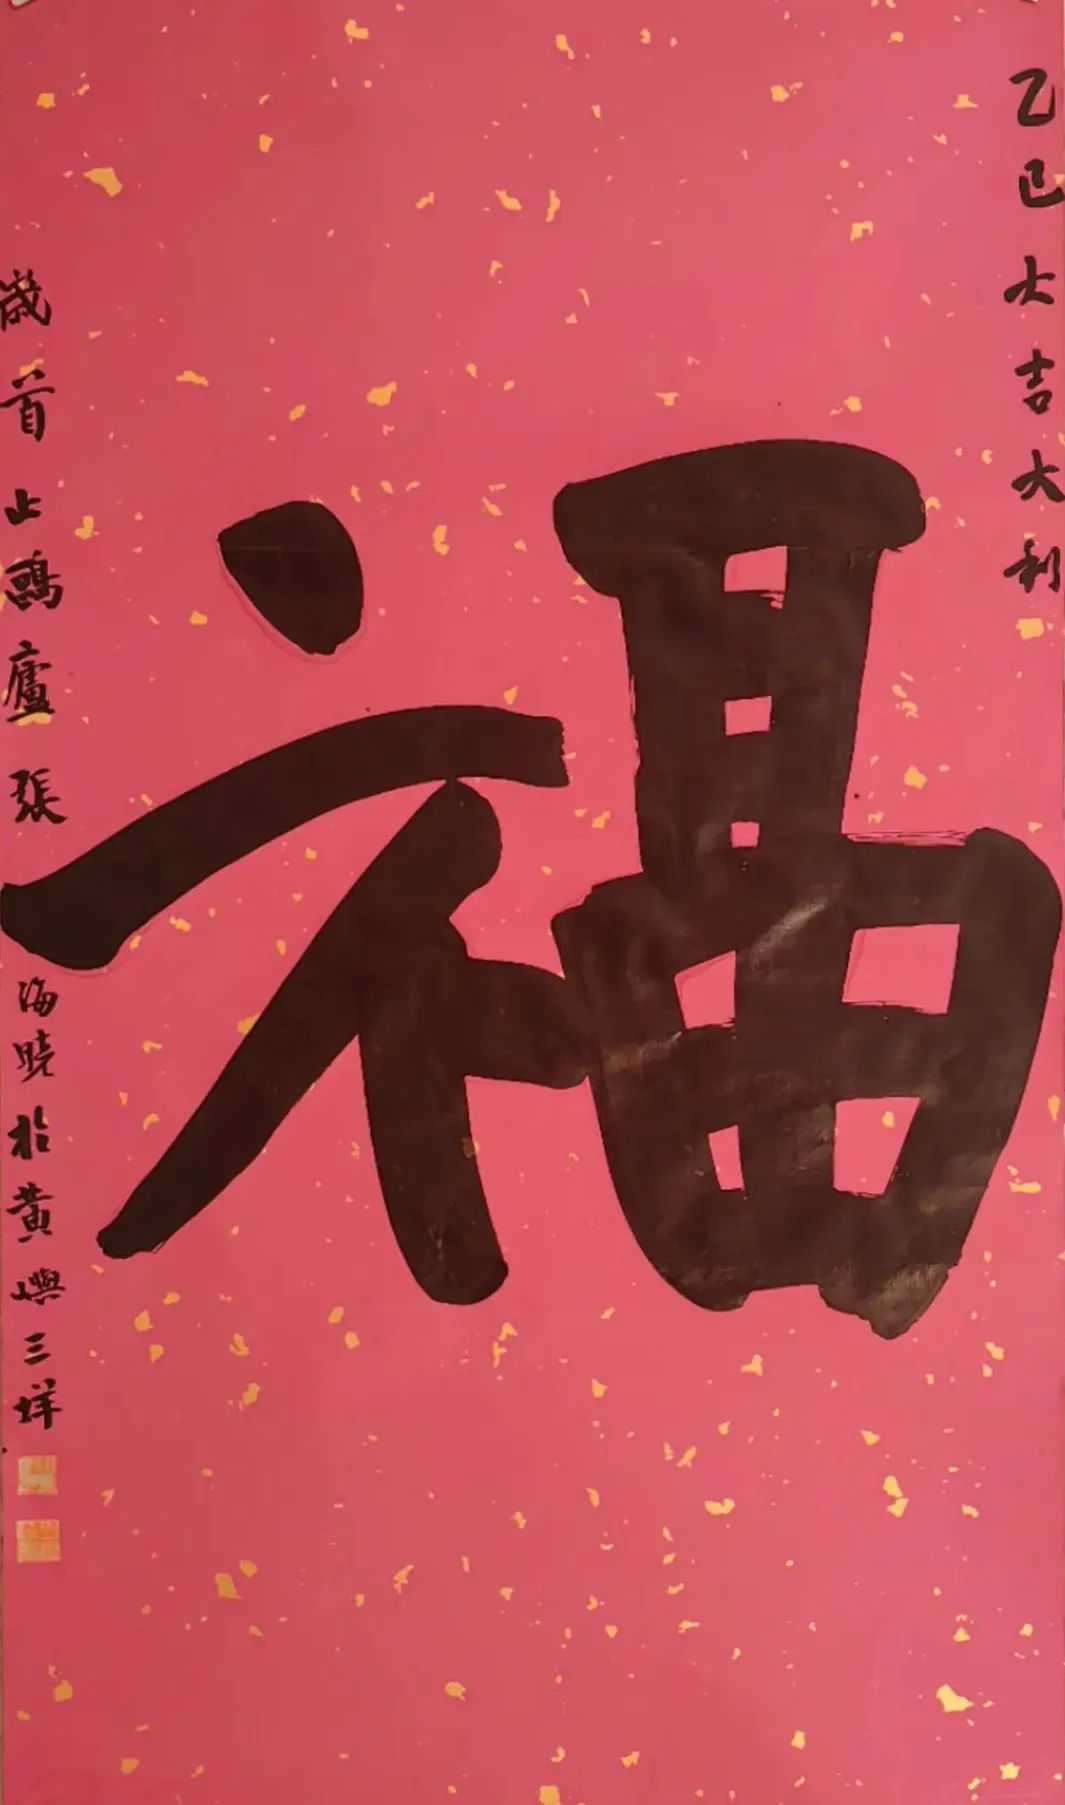 乙巳大吉大利
福
歲首止鷗廬張海曉於黃嶼三垟